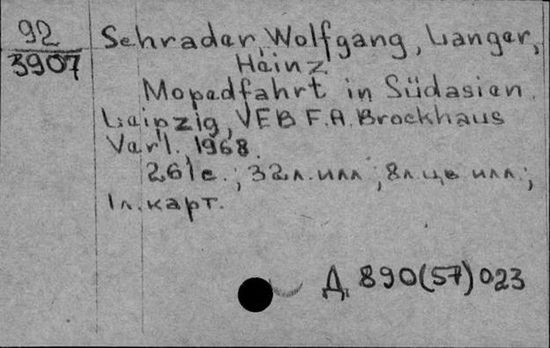 92
3907
Schrader, Wolfgang, Langer,
Heinz
Mopedfahrt in Südasien.
Leipzig, VEB F.A. Brockhaus
Verl. 1968.
261 с.; 32 л. илл; 8 л. цв. илл.;
1 л. карт.
Д 890(57)023